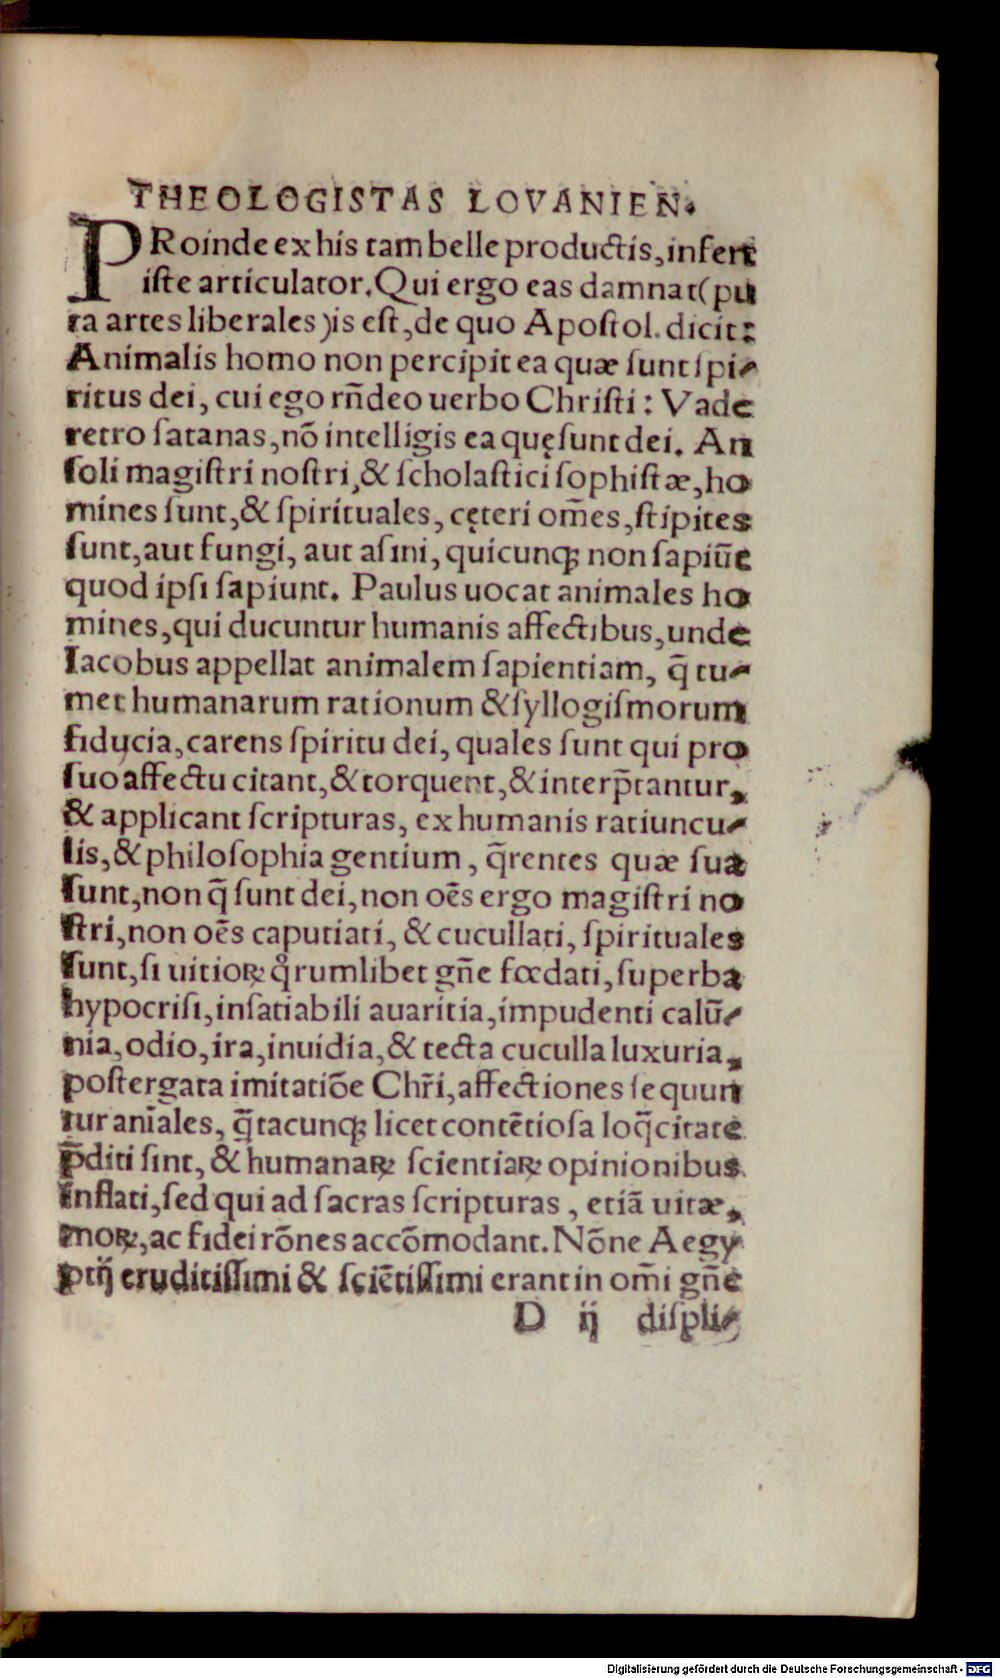 THEOLOGISTAS LOVANIEN.
PRoinde ex his tam belle productis, infert
iste articulator. Qui ergo eas damnat (pu
ta artes liberales) is est, de quo Apostol. dicit:
Animalis homo non percipit ea quæ sunt spi-
ritus dei, cui ego rñdeo uerbo Christi: Vade
retro satanas, nō intelligis ea quę sunt dei. An
soli magistri nostri, & scholastici sophistæ, ho
mines sunt, & spirituales, cęteri om̄es, stipites
sunt, aut fungi, aut asini, quicunqꝫ non sapiūt
quod ipsi sapiunt. Paulus uocat animales ho
mines, qui ducuntur humanis affectibus, unde
Iacobus appellat animalem sapientiam, q̄ tu-
met humanarum rationum & syllogismorum
fiducia, carens spiritu dei, quales sunt qui pro
suo affectu citant, & torquent, & interp̄tantur,
& applicant scripturas, ex humanis ratiuncu-
lis, & philosophia gentium, q̄rentes quæ sua
sunt, non q̄ sunt dei, non oēs ergo magistri no
stri, non oēs caputiati, & cucullati, spirituales
sunt, si uitioꝝ qͦrumlibet gñe fœdati, superba
hypocrisi, insatiabili auaritia, impudenti calū-
nia, odio, ira, inuidia, & tecta cuculla luxuria,
postergata imitatiōe Chr̄i, affectiones sequun
tur anīales, q̄tacunqꝫ licet contētiosa loq̄citate
p̄diti sint, & humanaꝝ scientiaꝝ opinionibus
inflati, sed qui ad sacras scripturas, etiā uitæ,
moꝝ, ac fidei rōnes accōmodant. Nōne Aegy
ptij eruditissimi & sciētissimi erant in om̄i gñe
D ij displi-
Digitalisierung gefördert durch die Deutsche Forschungsgemeinschaft - DFG